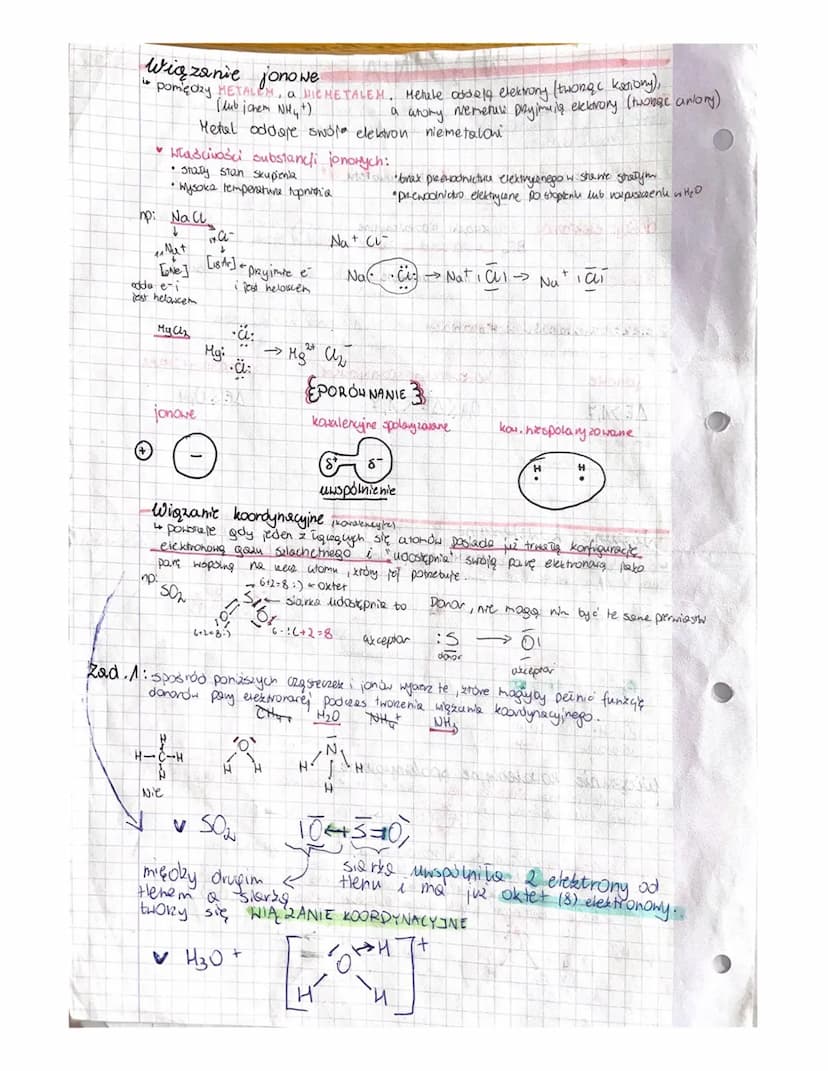 Wiązanie jonowe
↳ pomiędzy METALEM, a NIEMETALEM. Metale oddają elektrony (tworząc kationy),
(lub jonem NH₄⁺) a atomy niemetali przyjmują elektrony (tworząc aniony)
Metal oddaje swój elektron niemetalowi
♥ Właściwości substancji jonowych:
• stały stan skupienia • brak przewodnictwa elektrycznego w stanie stałym
• wysoka temperatura topnienia • przewodnictwo elektryczne po stopieniu lub rozpuszczeniu w H₂O
np: NaCl
₁₇Cl⁻ Na⁺ Cl⁻
₁₁Na⁺
[₁₀Ne] [₁₈Ar] ← przyjmie e⁻ Na· ·Cl: → Na⁺ |Cl| → Na⁺ |Cl|⁻
odda e⁻ i i jest helowcem
jest helowcem
MgCl₂ ·Cl:
Mg: → Mg²⁺ Cl₂⁻
·Cl:
{PORÓWNANIE}
jonowe kowalencyjne spolaryzowane kow. niespolaryzowane
+ − δ⁺ δ⁻ H H
uwspólnienie
Wiązanie koordynacyjne (kowalencyjne)
↳ powstaje gdy jeden z łączących się atomów posiada już trwałą konfigurację
elektronową gazu szlachetnego i "udostępnia" swoją parę elektronową jako
parę wspólną na rzecz atomu, który jej potrzebuje.
np:
SO₂ → 6+2=8 :) ← oktet
S ← siarka udostępnia to Donor, nie mogą nim być te same pierwiastki
O O
6+2=8 :) 6 :(+2=8 akceptor :S → O|
donor
akceptor
Zad.1: spośród poniższych cząsteczek i jonów wybierz te, które mogłyby pełnić funkcję
donorów pary elektronowej podczas tworzenia wiązania koordynacyjnego.
CH₄, H₂O NH₄⁺ NH₃
H
H-C-H O N
H H H H H
H
Nie
v SO₂ |O←S=O
siarka uwspólniła 2 elektrony od
tlenu i ma już oktet (8) elektronowy.
między drugim
tlenem a siarką
tworzy się WIĄZANIE KOORDYNACYJNE
v H₃O⁺ [O→H]⁺
H H